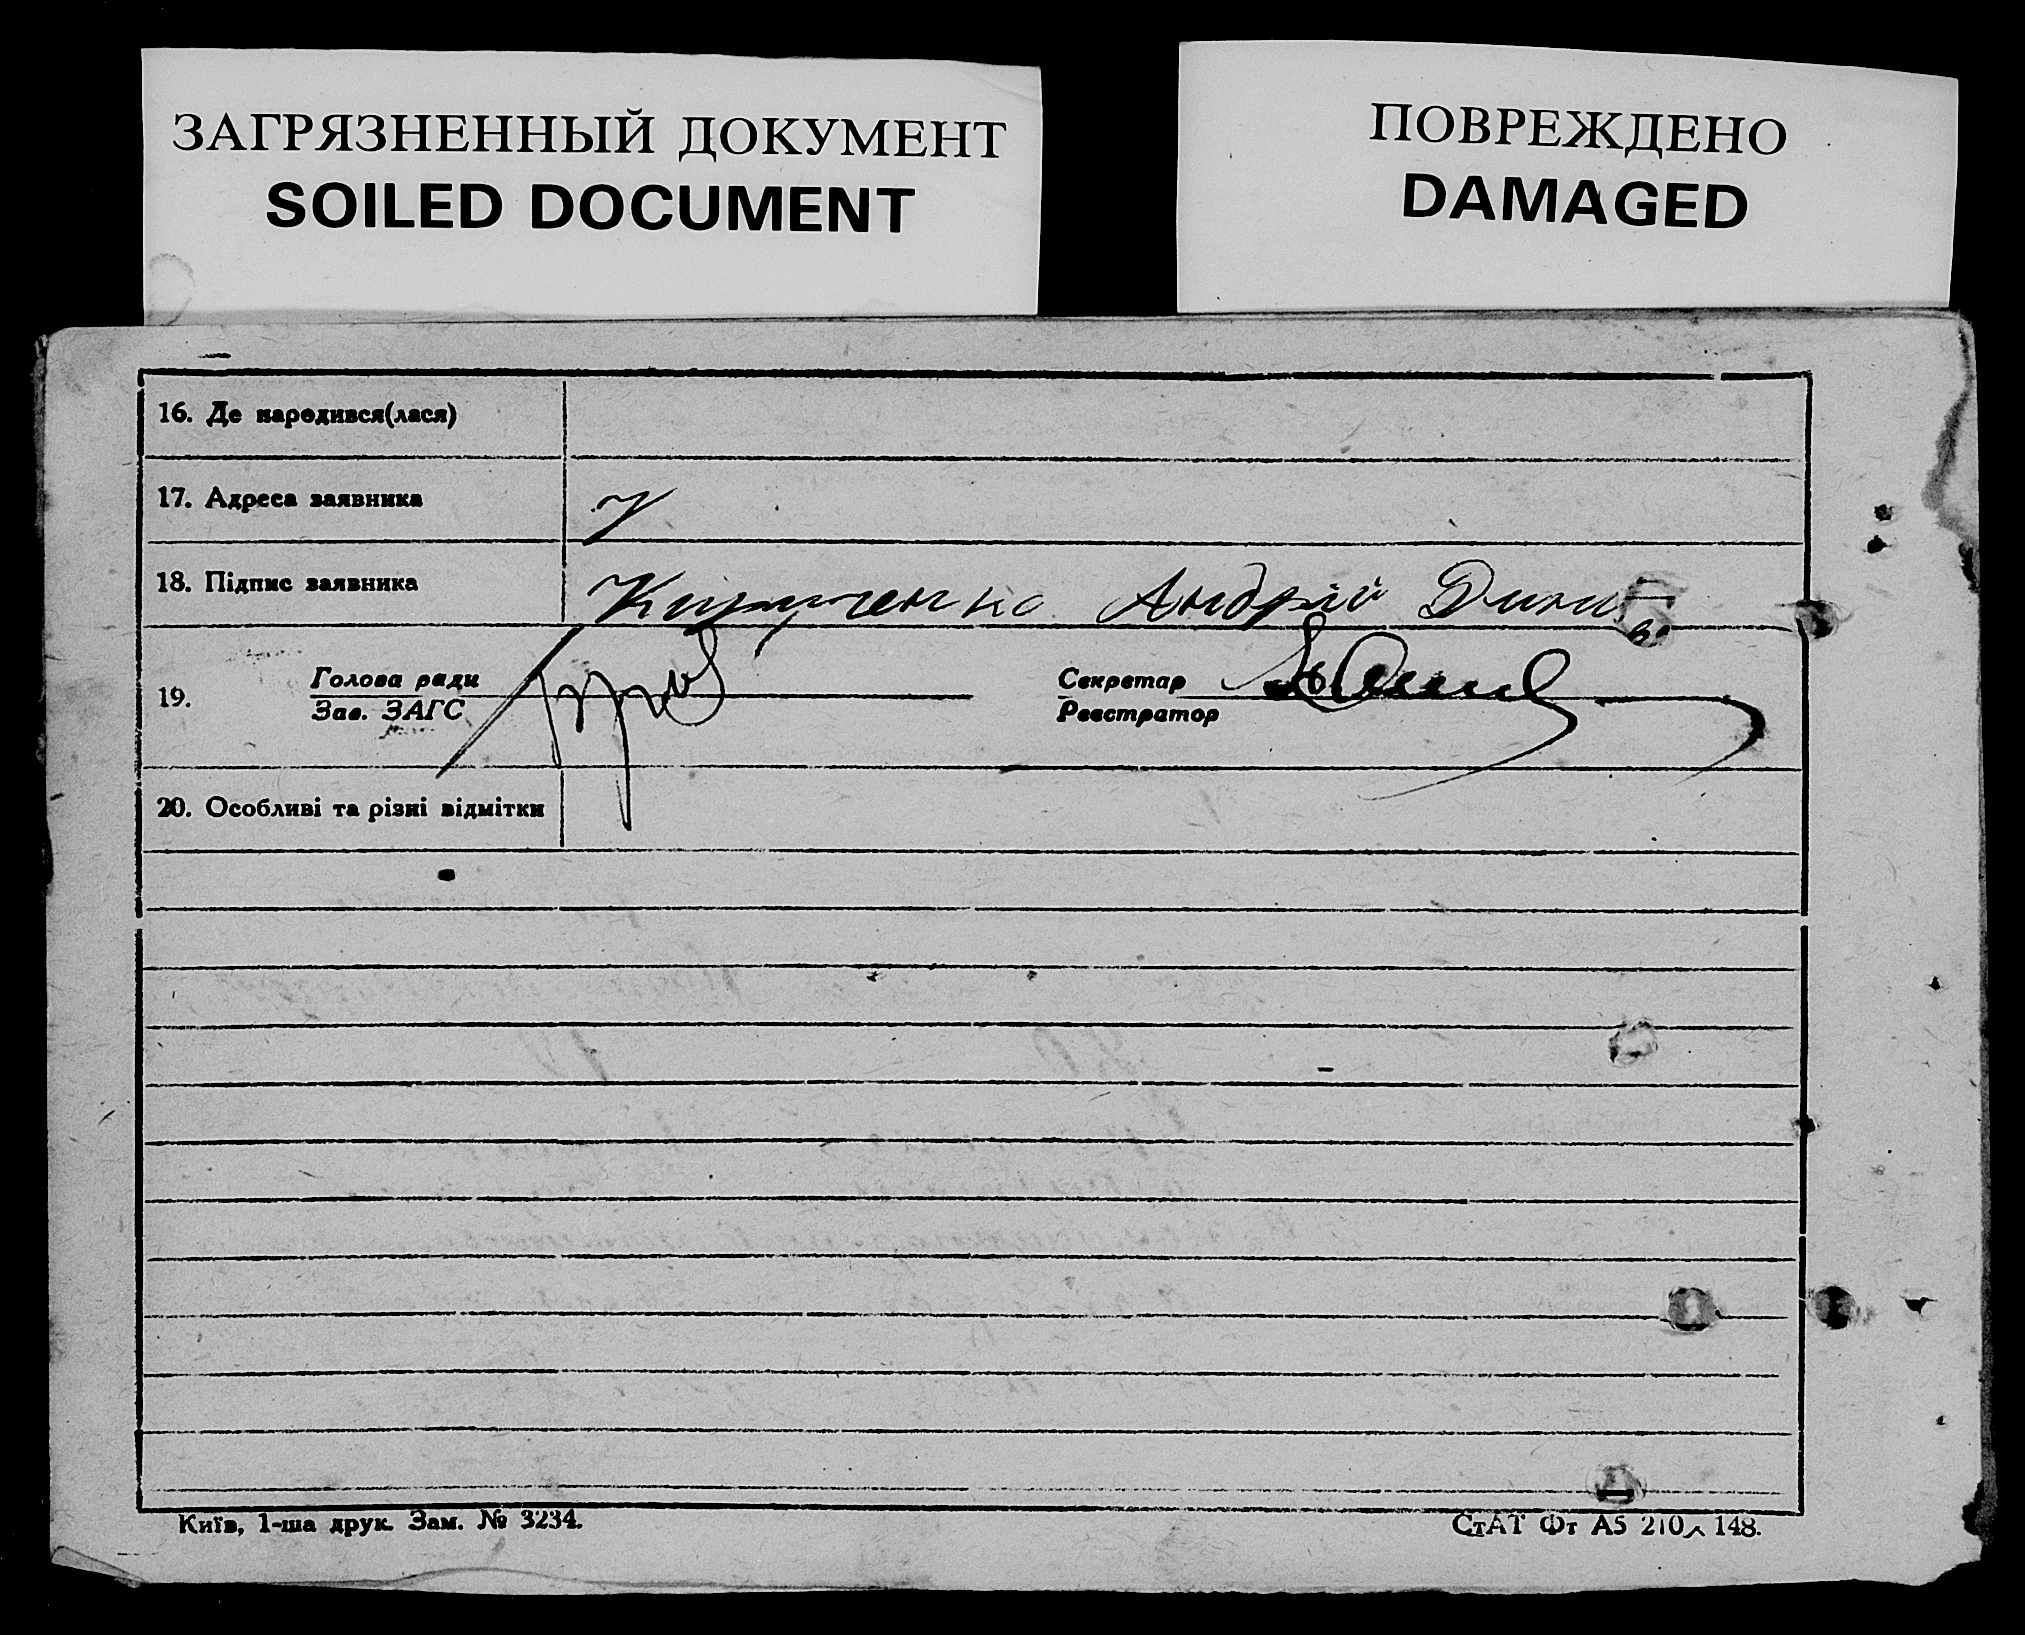 ЗАГРЯЗНЕННЫЙ ДОКУМЕНТ
SOILED DOCUMENT
ПОВРЕЖДЕНО
DAMAGED
16. Де народився(лася)
17. Адреса заявника
18. Підпис заявника Андрій
19. Голова ради
Зав. ЗАГС
Секретар
Реєстратор
20. Особливі та різні відмітки
Київ, 1-ша друк. Зам. № 3234.
СтАТ Фт А5 210 148.